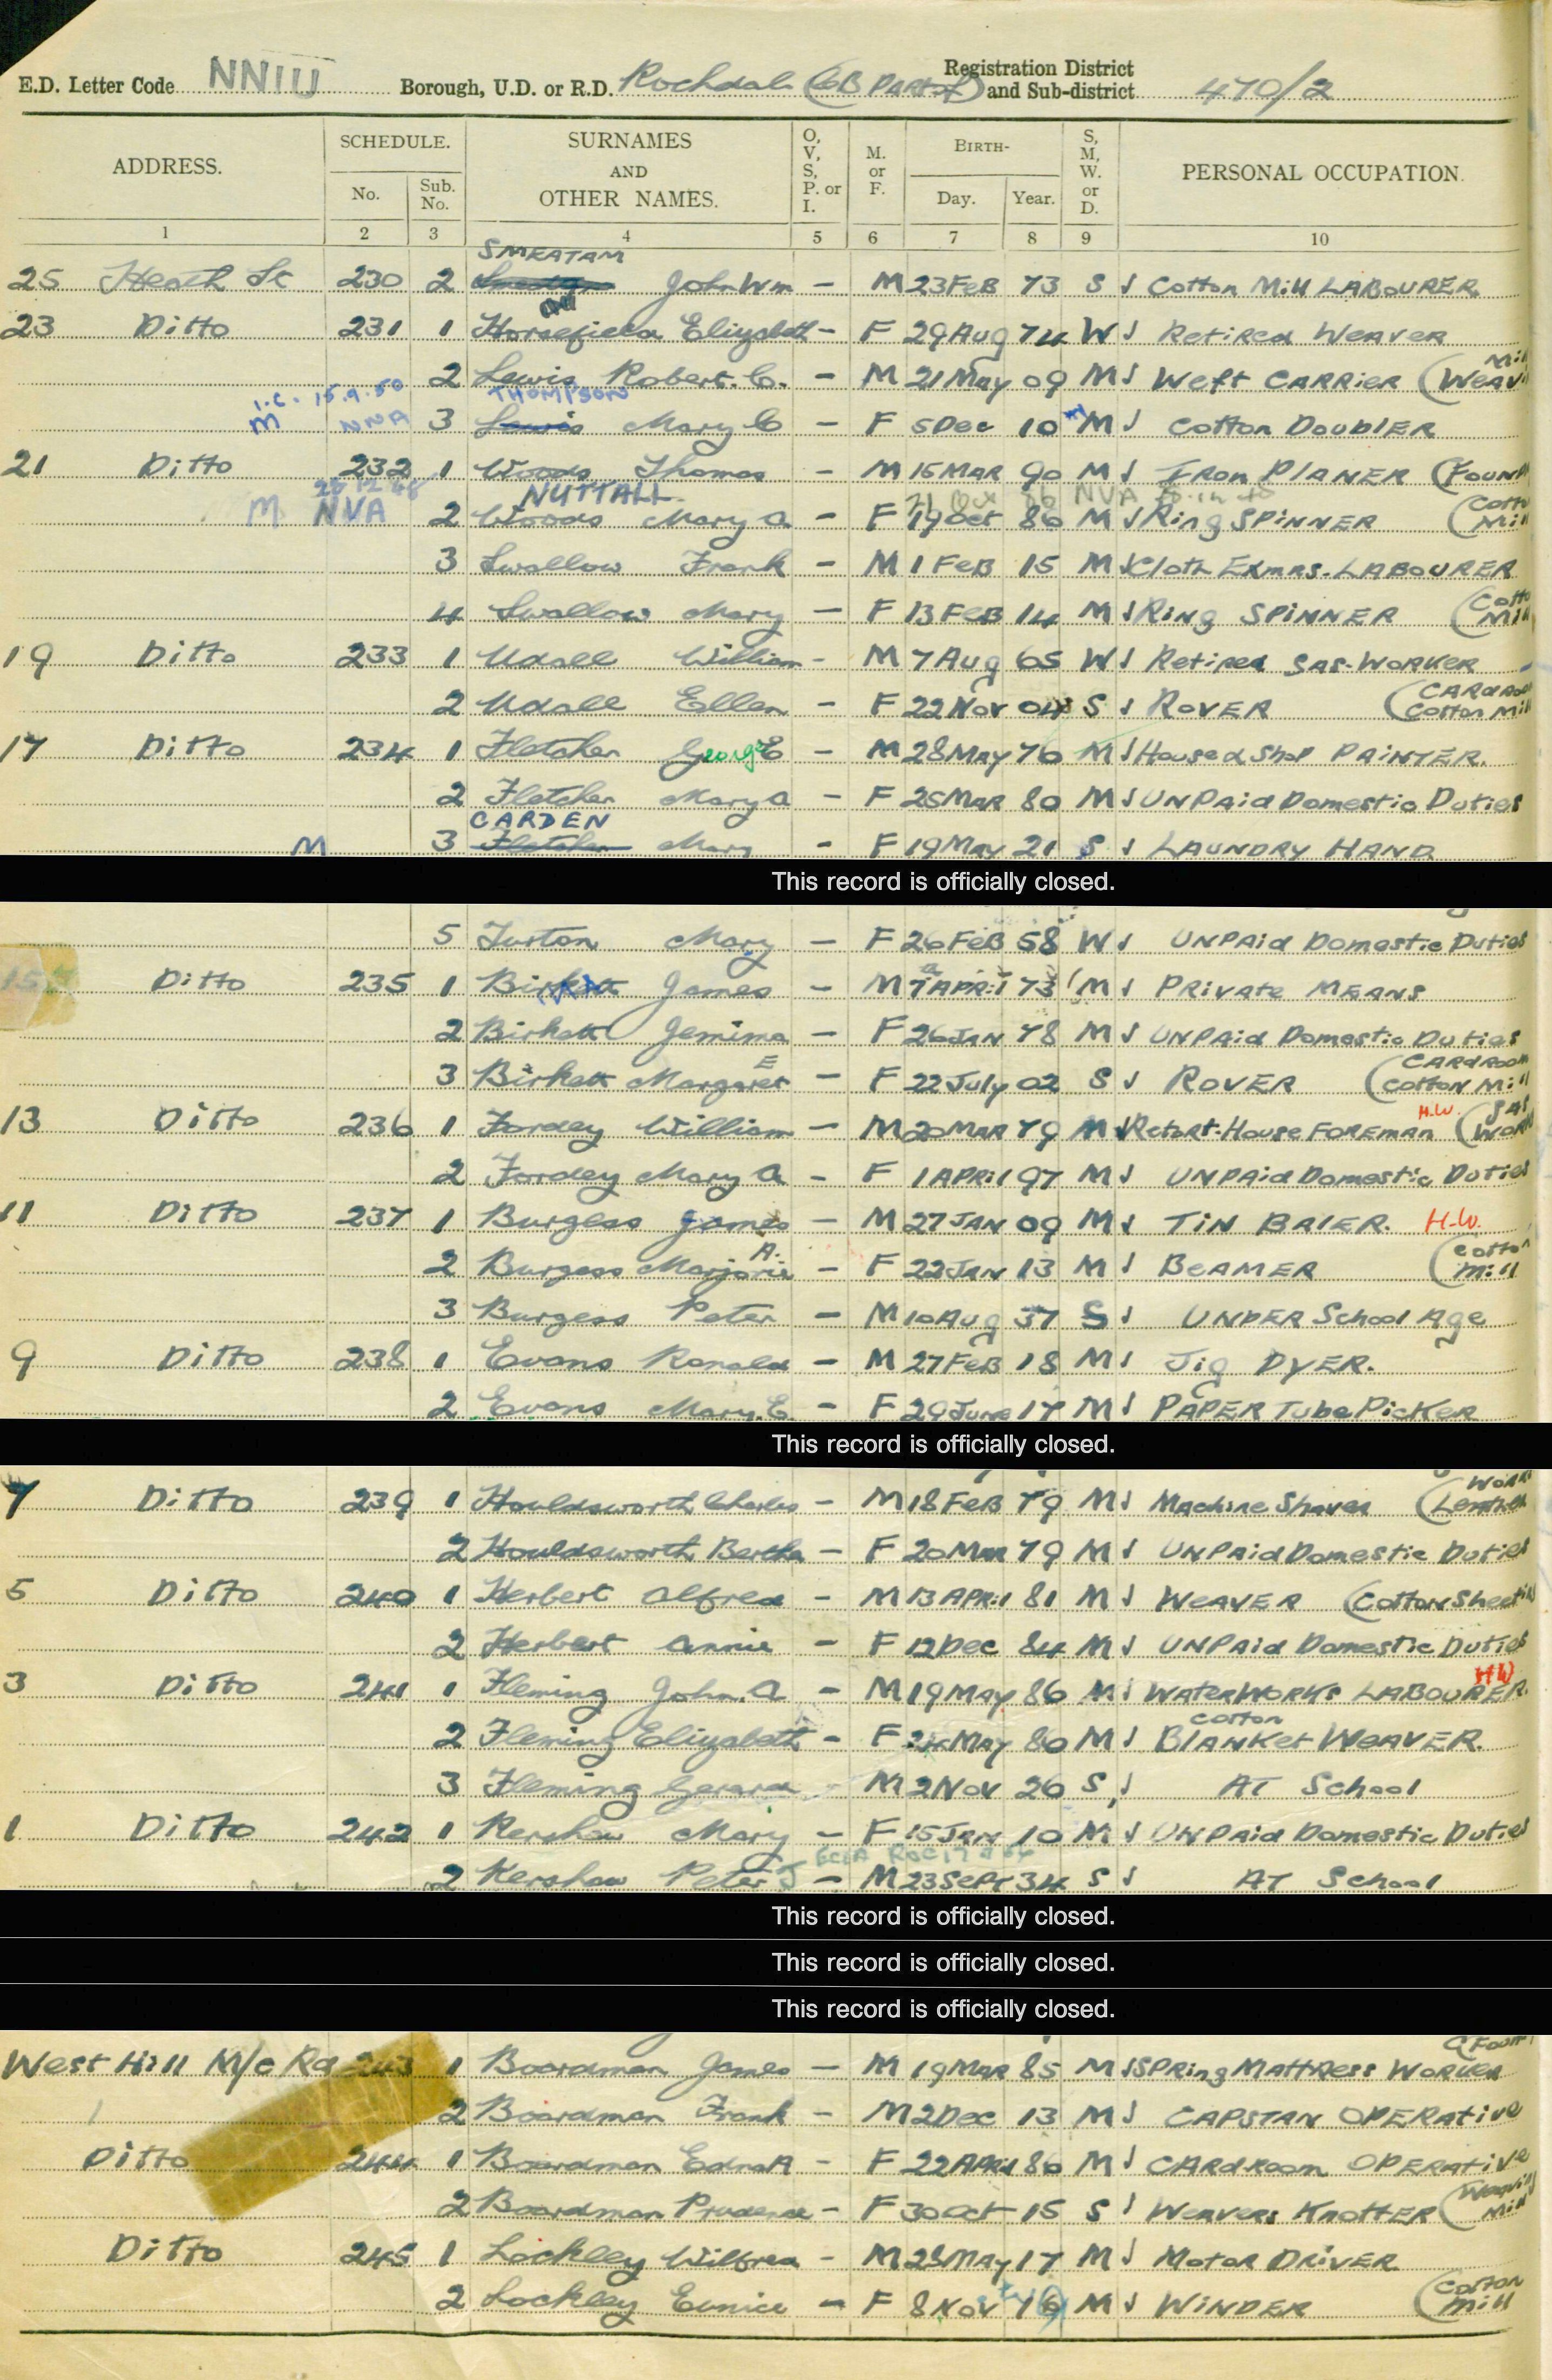 E.D. Letter Code NNIU Borough, U.D. or R.D. Rochdale (CB Part of) Registration District and Sub-district 470/2
ADDRESS. SCHEDULE. No. Sub. No. SURNAMES AND OTHER NAMES. O, V, S, P. or I. M. or F. BIRTH- Day. Year. S, M, W. or D. PERSONAL OCCUPATION.
1 2 3 4 5 6 7 8 9 10
SMEATAM
25 Heath St 230 2 John Wm - M 23 FeB 73 S Cotton Mill LABOURER
23 Ditto 231 1 Horsefield Elizabeth - F 29 Aug 74 W Retired Weaver
2 Lewis Robert. C. - M 21 May 09 M Weft CARRieR (Weav Mil
I.C. 15.9.50 THOMPSON
M NNA 3 Lewis Mary C - F 5 Dec 10 M Cotton DoublER
21 Ditto 232 1 Woods Thomas - M 15 MAR 90 M IRon PlANER (Foun
NUTTALL NVA
M NVA 2 Woods Mary A - F 19 Oct 86 M Ring SPiNNER (Cott Mil
3 Swallow Frank - M 1 FeB 15 M Cloth Exmrs. LABOURER
4 Swallow Mary - F 13 FeB 14 M RiNg SPiNNER (Cotto Mil
19 Ditto 233 1 Udall William - M 7 Aug 65 W Retired GAS-WORKER
2 Udall Ellen - F 22 Nov 04 S ROVER (CARdRoo Cotton Mil
17 Ditto 234 1 Fletcher George E - M 28 May 76 M House & Shop PAiNTER.
2 Fletcher Mary A - F 25 MAR 80 M UNPaid Domestic Duties
CARDEN
M 3 Fletcher Mary - F 19 May 21 S LAUNDRY HAND
This record is officially closed.
5 Turton Mary - F 26 FeB 58 W UNPAid Domestic Duties
15 Ditto 235 1 Birkett James - M 7 APRil 73 M PRivate MEANS
2 Birkett Jemima - F 26 JAN 78 M UNPAid Domestic Duties
3 Birkett Margaret E - F 22 July 02 S ROVER (CARdROOM Cotton Mill
13 Ditto 236 1 Fordey William - M 20 MAR 79 M Retort-House FOREMAN H.W. (GAS WORK
2 Fordey Mary A - F 1 APRil 97 M UNPAid Domestic Duties
11 Ditto 237 1 Burgess James - M 27 JAN 09 M TiN BAlER. H.W.
2 Burgess Marjorie A. - F 22 JAN 13 M BeAMER (Cotton Mill
3 Burgess Peter - M 10 Aug 37 S UNDER School Age
9 Ditto 238 1 Evans Ronald - M 27 FeB 18 M Jig DyER.
2 Evans Mary. E. - F 29 June 17 M PAPER Tube PicKER
This record is officially closed.
7 Ditto 239 1 Houldsworth Charles - M 18 FeB 79 M Machine Shaver (Leather Work
2 Houldsworth Bertha - F 20 Mar 79 M UNPAid Domestic Duties
5 Ditto 240 1 Herbert Alfred - M 13 APRil 81 M WEAVER (Cotton Sheetin
2 Herbert Annie - F 12 Dec 84 M UNPAid Domestic Duties
3 Ditto 241 1 Fleming John. A - M 19 MAy 86 M WATERWORKs LABOURER. HW
2 Fleming Elizabeth - F 24 MAy 80 M Cotton BlANKet WeAVER.
3 Fleming Gerard - M 2 Nov 26 S AT School
1 Ditto 242 1 Kershaw Mary - F 15 JAN 10 M UNPAid Domestic Duties
2 Kershaw Peter J - M 23 SePt 34 S AT School
This record is officially closed.
This record is officially closed.
This record is officially closed.
West Hill M/c Rd 243 1 Boardman James - M 19 MAR 85 M SPRing MAttRess WoRKER
2 Boardman Frank - M 2 Dec 13 M CAPSTAN OPERAtive
Ditto 244 1 Boardman Edna A - F 22 APRil 86 M CARdRoom OPERAtive
2 Boardman Prudence - F 30 Oct 15 S Weavers KnotteR (Weavin Mill
Ditto 245 1 Lockley Wilfred - M 28 MAy 17 M MotoR DRiVER
2 Lockley Eunice - F 8 Nov 16 M WiNDER (Cotton Mill